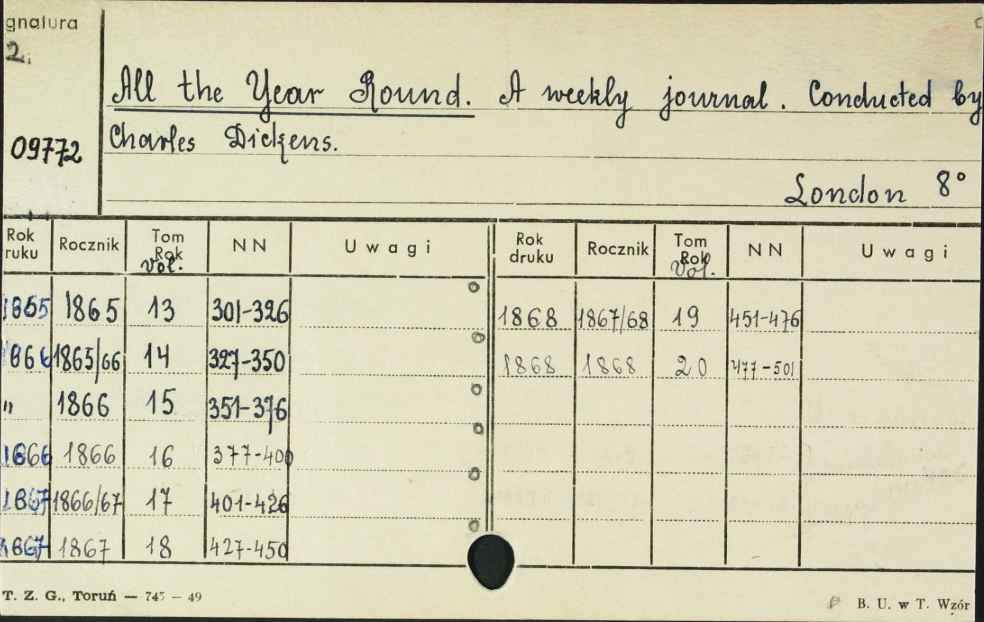 gnatura
2.
09772
All the Year Round. A weekly journal. Conducted by
Charles Dickens.
London 8°
Rok ruku Rocznik Tom Rok Vol. NN Uwagi Rok druku Rocznik Tom Rok Vol. NN Uwagi
1865 1865 13 301-326 1868 1867/68 19 451-476
1866 1865/66 14 327-350 1868 1868 20 477-501
" 1866 15 351-376
1866 1866 16 377-400
1867 1866/67 17 401-426
1867 1867 18 427-450
T. Z. G., Toruń — 745 — 49
B. U. w T. Wzór